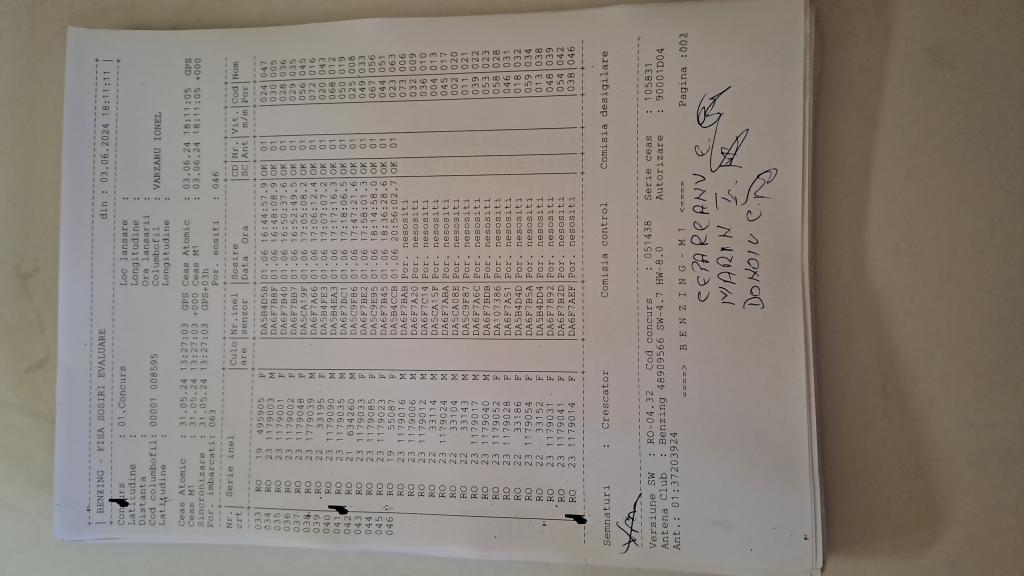 BENZING - FISA SOSIRI EVALUARE din : 03.06.2024 18:11:11
Concurs : 01.Concurs Loc lansare :
Latitudine : Longitudine :
Distanta : Ora lansarii :
Cod columbofil: 00001 008595 Columbofil : VARZARU IONEL
Latitudine : Longitudine :
Ceas Atomic : 31.05.24 13:27:03 GPS Ceas Atomic : 03.06.24 18:11:05 GPS
Ceas M1 : 31.05.24 13:27:03 +000 Ceas M1 : 03.06.24 18:11:05 +000
Sincronizare : 31.05.24 13:27:03 GPS+03h
Por. imbarcati: 063 Por. sositi : 046
Nr. Serie inel Culo Nr.inel Sosire CD Nr. Vit. Cod Nom
crt are senzor Data Ora SC Ant m/m Por
033 RO 19 495905 F DA5B4D5B 01.06 16:44:57.9 OK 01 024 047
034 RO 23 1179003 M DA6F7B8F 01.06 16:48:08.9 OK 01 030 005
035 RO 23 1179001 F DA6F7B40 01.06 16:50:37.6 OK 01 028 036
036 RO 23 1179002 F DA6F7B37 01.06 16:52:49.5 OK 01 029 035
037 RO 23 1179048 F DA5CA19F 01.06 17:05:08.2 OK 01 056 045
038 RO 23 1179039 M DA6F7A66 01.06 17:06:12.4 OK 01 072 016
039 RO 22 33195 F DA5B4FE3 01.06 17:07:07.2 OK 01 020 043
040 RO 23 1179090 M DA5B4EA1 01.06 17:17:16.3 OK 01 068 012
041 RO 23 1179035 M DA6F7BC1 01.06 17:18:06.5 OK 01 050 019
042 RO 21 634260 M DA5C9FB6 01.06 17:47:21.6 OK 01 025 008
043 RO 23 1179033 F DA6F7BE2 01.06 17:58:01.3 OK 01 049 033
044 RO 23 1179085 F DA5C9E95 01.06 18:14:58.0 OK 01 067 056
045 RO 23 1179023 F DA6F7B45 01.06 18:36:28.6 OK 01 044 051
046 RO 19 55087 F DA5B4CCB 01.06 20:56:02.7 OK 01 023 063
RO 23 1179016 M DA6F7BAB Por. nesositi 073 006
RO 23 1179006 M DA6F7A20 Por. nesositi 032 009
RO 23 1179012 M DA6F7C14 Por. nesositi 036 010
RO 22 33114 M DA5CA15F Por. nesositi 004 013
RO 23 1179024 M DA6F7ABA Por. nesositi 045 017
RO 22 33104 M DA5CA08E Por. nesositi 002 020
RO 22 33143 M DA5C9F87 Por. nesositi 011 021
RO 23 1179017 M DA6F7A6C Por. nesositi 039 022
RO 23 1179040 M DA6F7BDB Por. nesositi 053 023
RO 23 1179052 F DA107386 Por. nesositi 058 028
RO 23 1179028 F DA6F7A51 Por. nesositi 046 031
RO 22 33186 F DA5B4D4D Por. nesositi 018 032
RO 23 1179054 F DA6F7B5A Por. nesositi 059 034
RO 22 33152 F DA5B4DD4 Por. nesositi 013 038
RO 23 1179031 F DA6F7B92 Por. nesositi 048 039
RO 23 1179041 F DA6F7B2D Por. nesositi 054 042
RO 23 1179014 F DA6F7AEF Por. nesositi 038 046
Semnaturi : Crescator Comisia control Comisia desigilare
Versiune SW : RO-04.32 Cod concurs : 051438 Serie ceas : 105831
Antena Club : Benzing 48909566 SW-4.7 HW-8.0 Autorizare : 90001D04
Ant.: 01:37203924
====> B E N Z I N G - M 1 <==== Pagina :002
CEPAREANU C.
MARIN I.
DONOIU C.